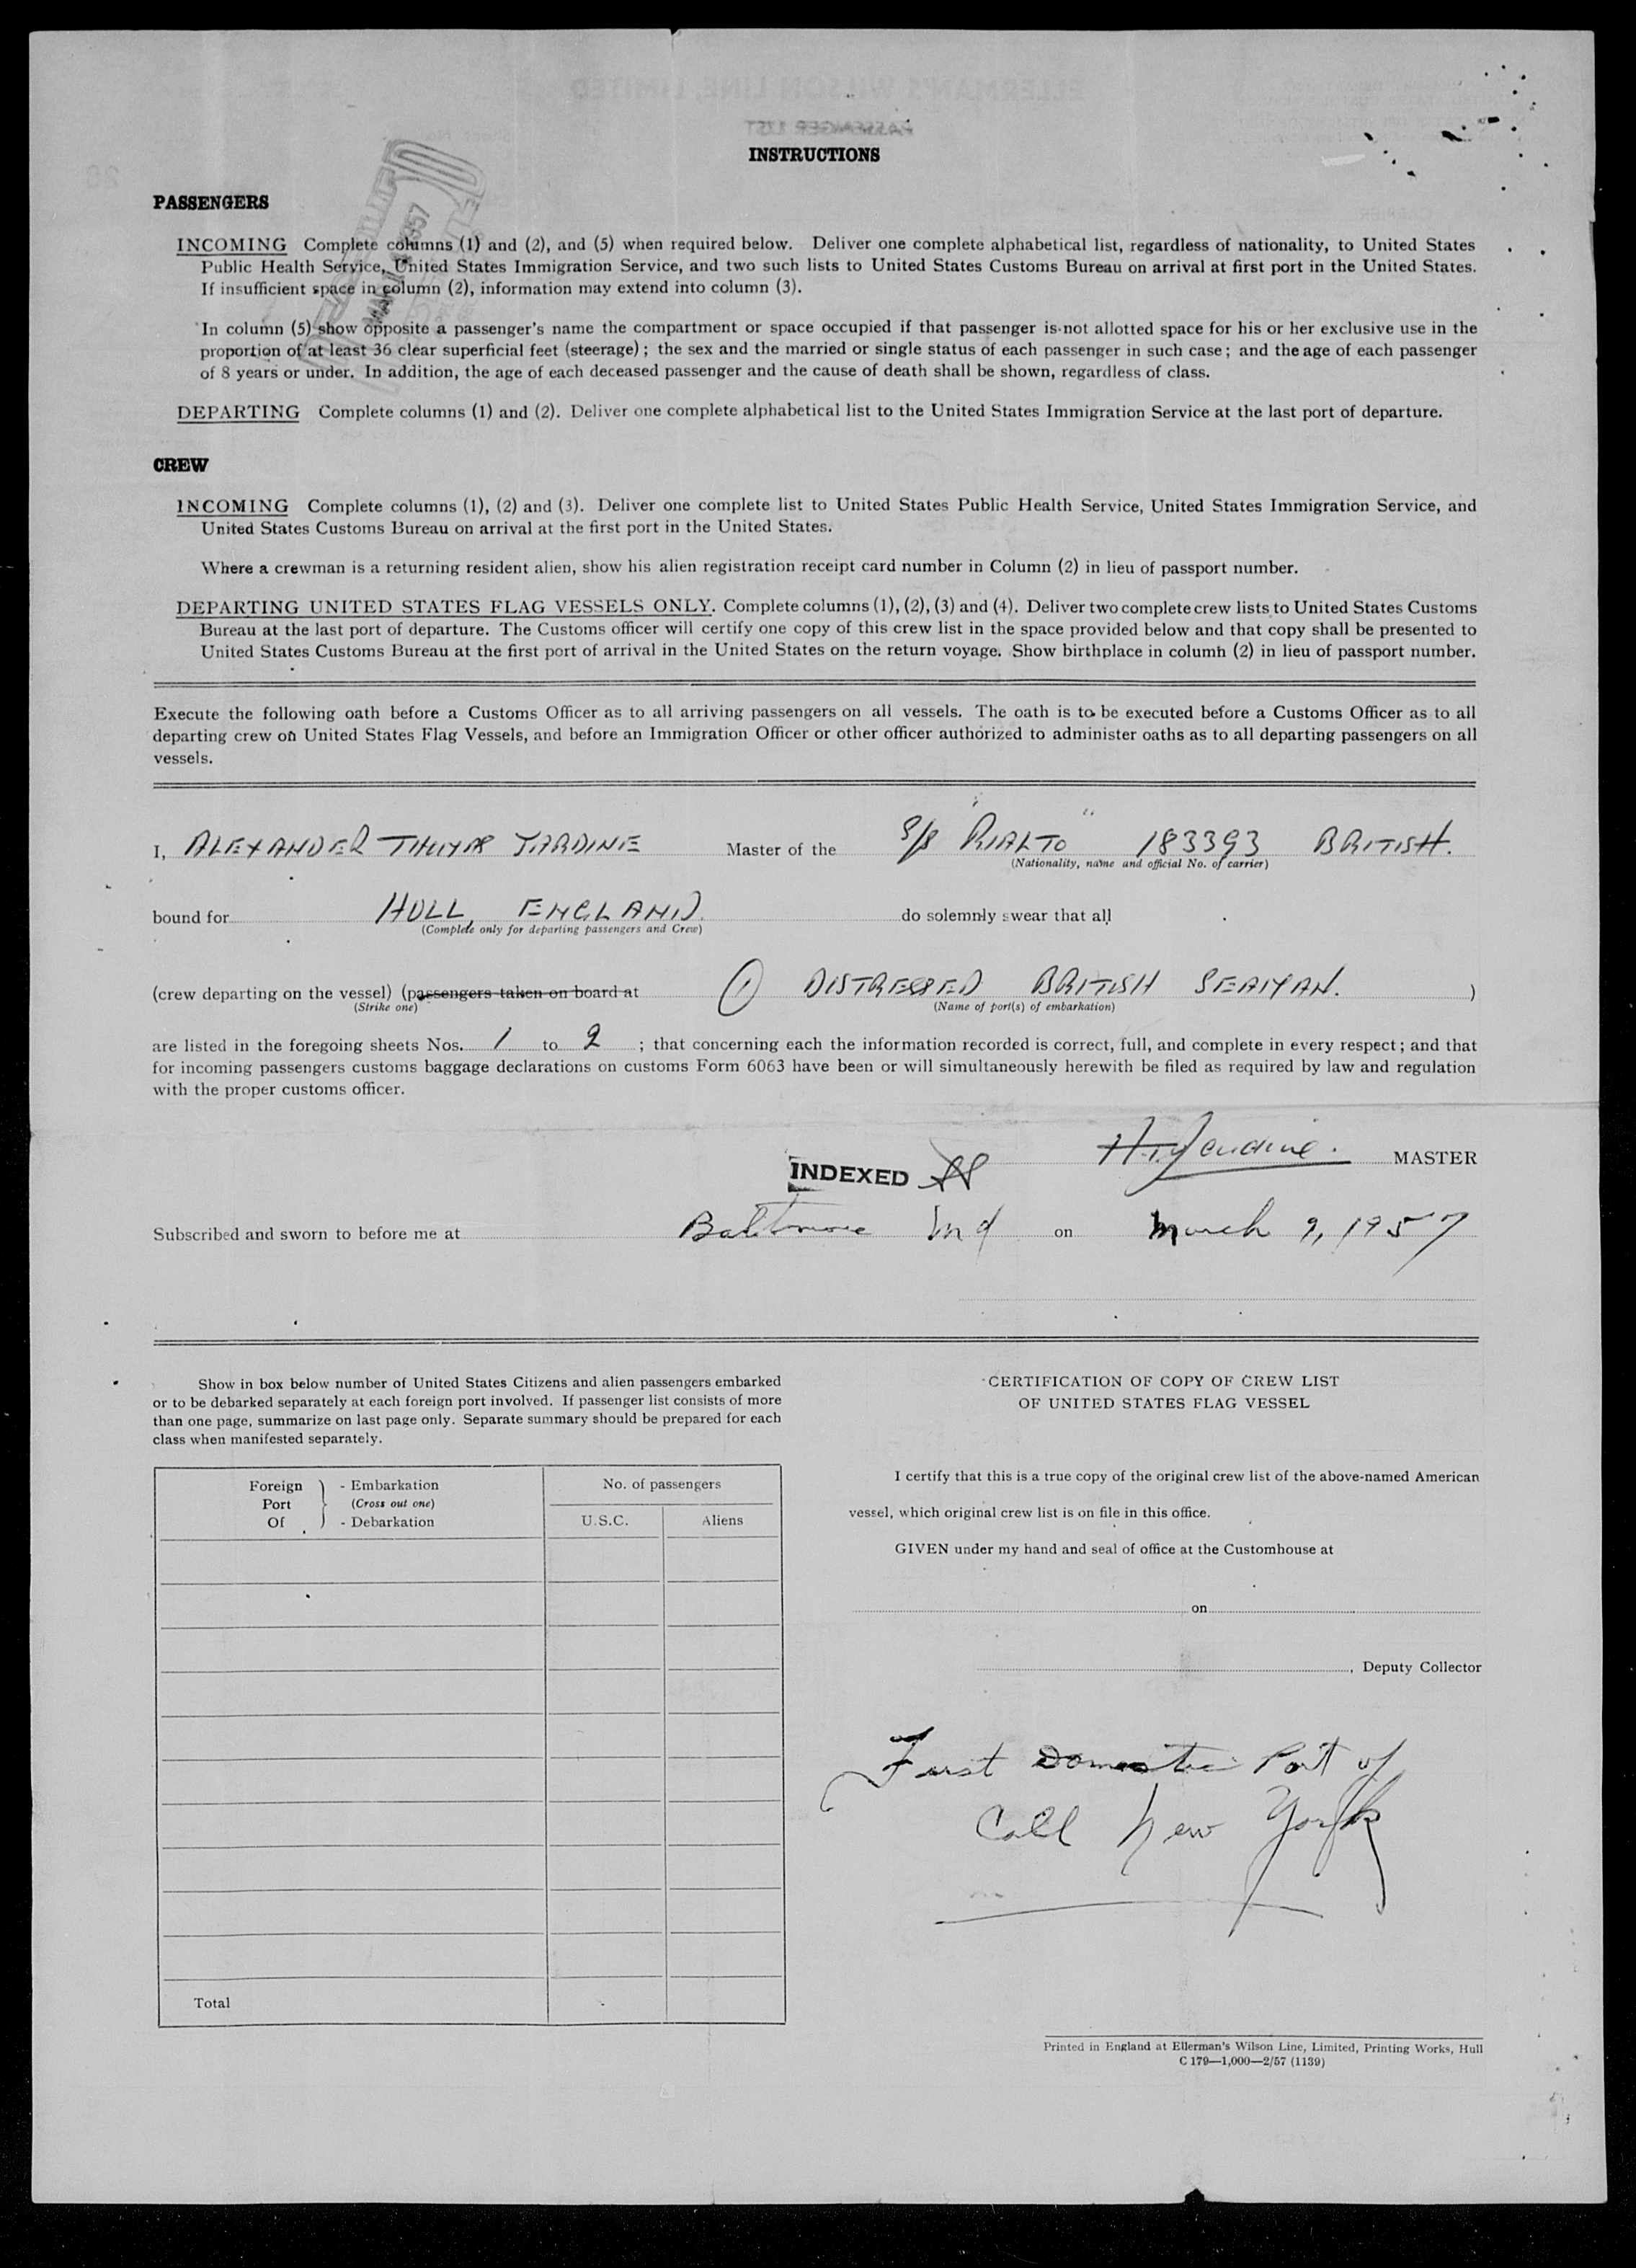 INSTRUCTIONS
PASSENGERS
INCOMING Complete columns (1) and (2), and (5) when required below. Deliver one complete alphabetical list, regardless of nationality, to United States
Public Health Service, United States Immigration Service, and two such lists to United States Customs Bureau on arrival at first port in the United States.
If insufficient space in column (2), information may extend into column (3).
In column (5) show opposite a passenger's name the compartment or space occupied if that passenger is not allotted space for his or her exclusive use in the
proportion of at least 36 clear superficial feet (steerage); the sex and the married or single status of each passenger in such case; and the age of each passenger
of 8 years or under. In addition, the age of each deceased passenger and the cause of death shall be shown, regardless of class.
DEPARTING Complete columns (1) and (2). Deliver one complete alphabetical list to the United States Immigration Service at the last port of departure.
CREW
INCOMING Complete columns (1), (2) and (3). Deliver one complete list to United States Public Health Service, United States Immigration Service, and
United States Customs Bureau on arrival at the first port in the United States.
Where a crewman is a returning resident alien, show his alien registration receipt card number in Column (2) in lieu of passport number.
DEPARTING UNITED STATES FLAG VESSELS ONLY. Complete columns (1), (2), (3) and (4). Deliver two complete crew lists to United States Customs
Bureau at the last port of departure. The Customs officer will certify one copy of this crew list in the space provided below and that copy shall be presented to
United States Customs Bureau at the first port of arrival in the United States on the return voyage. Show birthplace in column (2) in lieu of passport number.
Execute the following oath before a Customs Officer as to all arriving passengers on all vessels. The oath is to be executed before a Customs Officer as to all
departing crew on United States Flag Vessels, and before an Immigration Officer or other officer authorized to administer oaths as to all departing passengers on all
vessels.
I, ALEXANDER THOMAS JARDINE Master of the S/S "RIALTO" 183393 BRITISH.
(Nationality, name and official No. of carrier)
bound for HULL, ENGLAND. do solemnly swear that all
(Complete only for departing passengers and Crew)
(crew departing on the vessel) (passengers taken on board at 1 DISTRESSED BRITISH SEAMAN. )
(Strike one) (Name of port(s) of embarkation)
are listed in the foregoing sheets Nos. 1 to 2 ; that concerning each the information recorded is correct, full, and complete in every respect; and that
for incoming passengers customs baggage declarations on customs Form 6063 have been or will simultaneously herewith be filed as required by law and regulation
with the proper customs officer.
A.T. Jardine. MASTER
INDEXED
Subscribed and sworn to before me at Baltimore Md on March 9, 1957
Show in box below number of United States Citizens and alien passengers embarked
or to be debarked separately at each foreign port involved. If passenger list consists of more
than one page, summarize on last page only. Separate summary should be prepared for each
class when manifested separately.
Foreign Port Of - Embarkation (Cross out one) - Debarkation
No. of passengers
U.S.C. Aliens
Total
CERTIFICATION OF COPY OF CREW LIST
OF UNITED STATES FLAG VESSEL
I certify that this is a true copy of the original crew list of the above-named American
vessel, which original crew list is on file in this office.
GIVEN under my hand and seal of office at the Customhouse at
on
, Deputy Collector
First Domestic Port of
Call New York
Printed in England at Ellerman's Wilson Line, Limited, Printing Works, Hull
C 179—1,000—2/57 (1139)